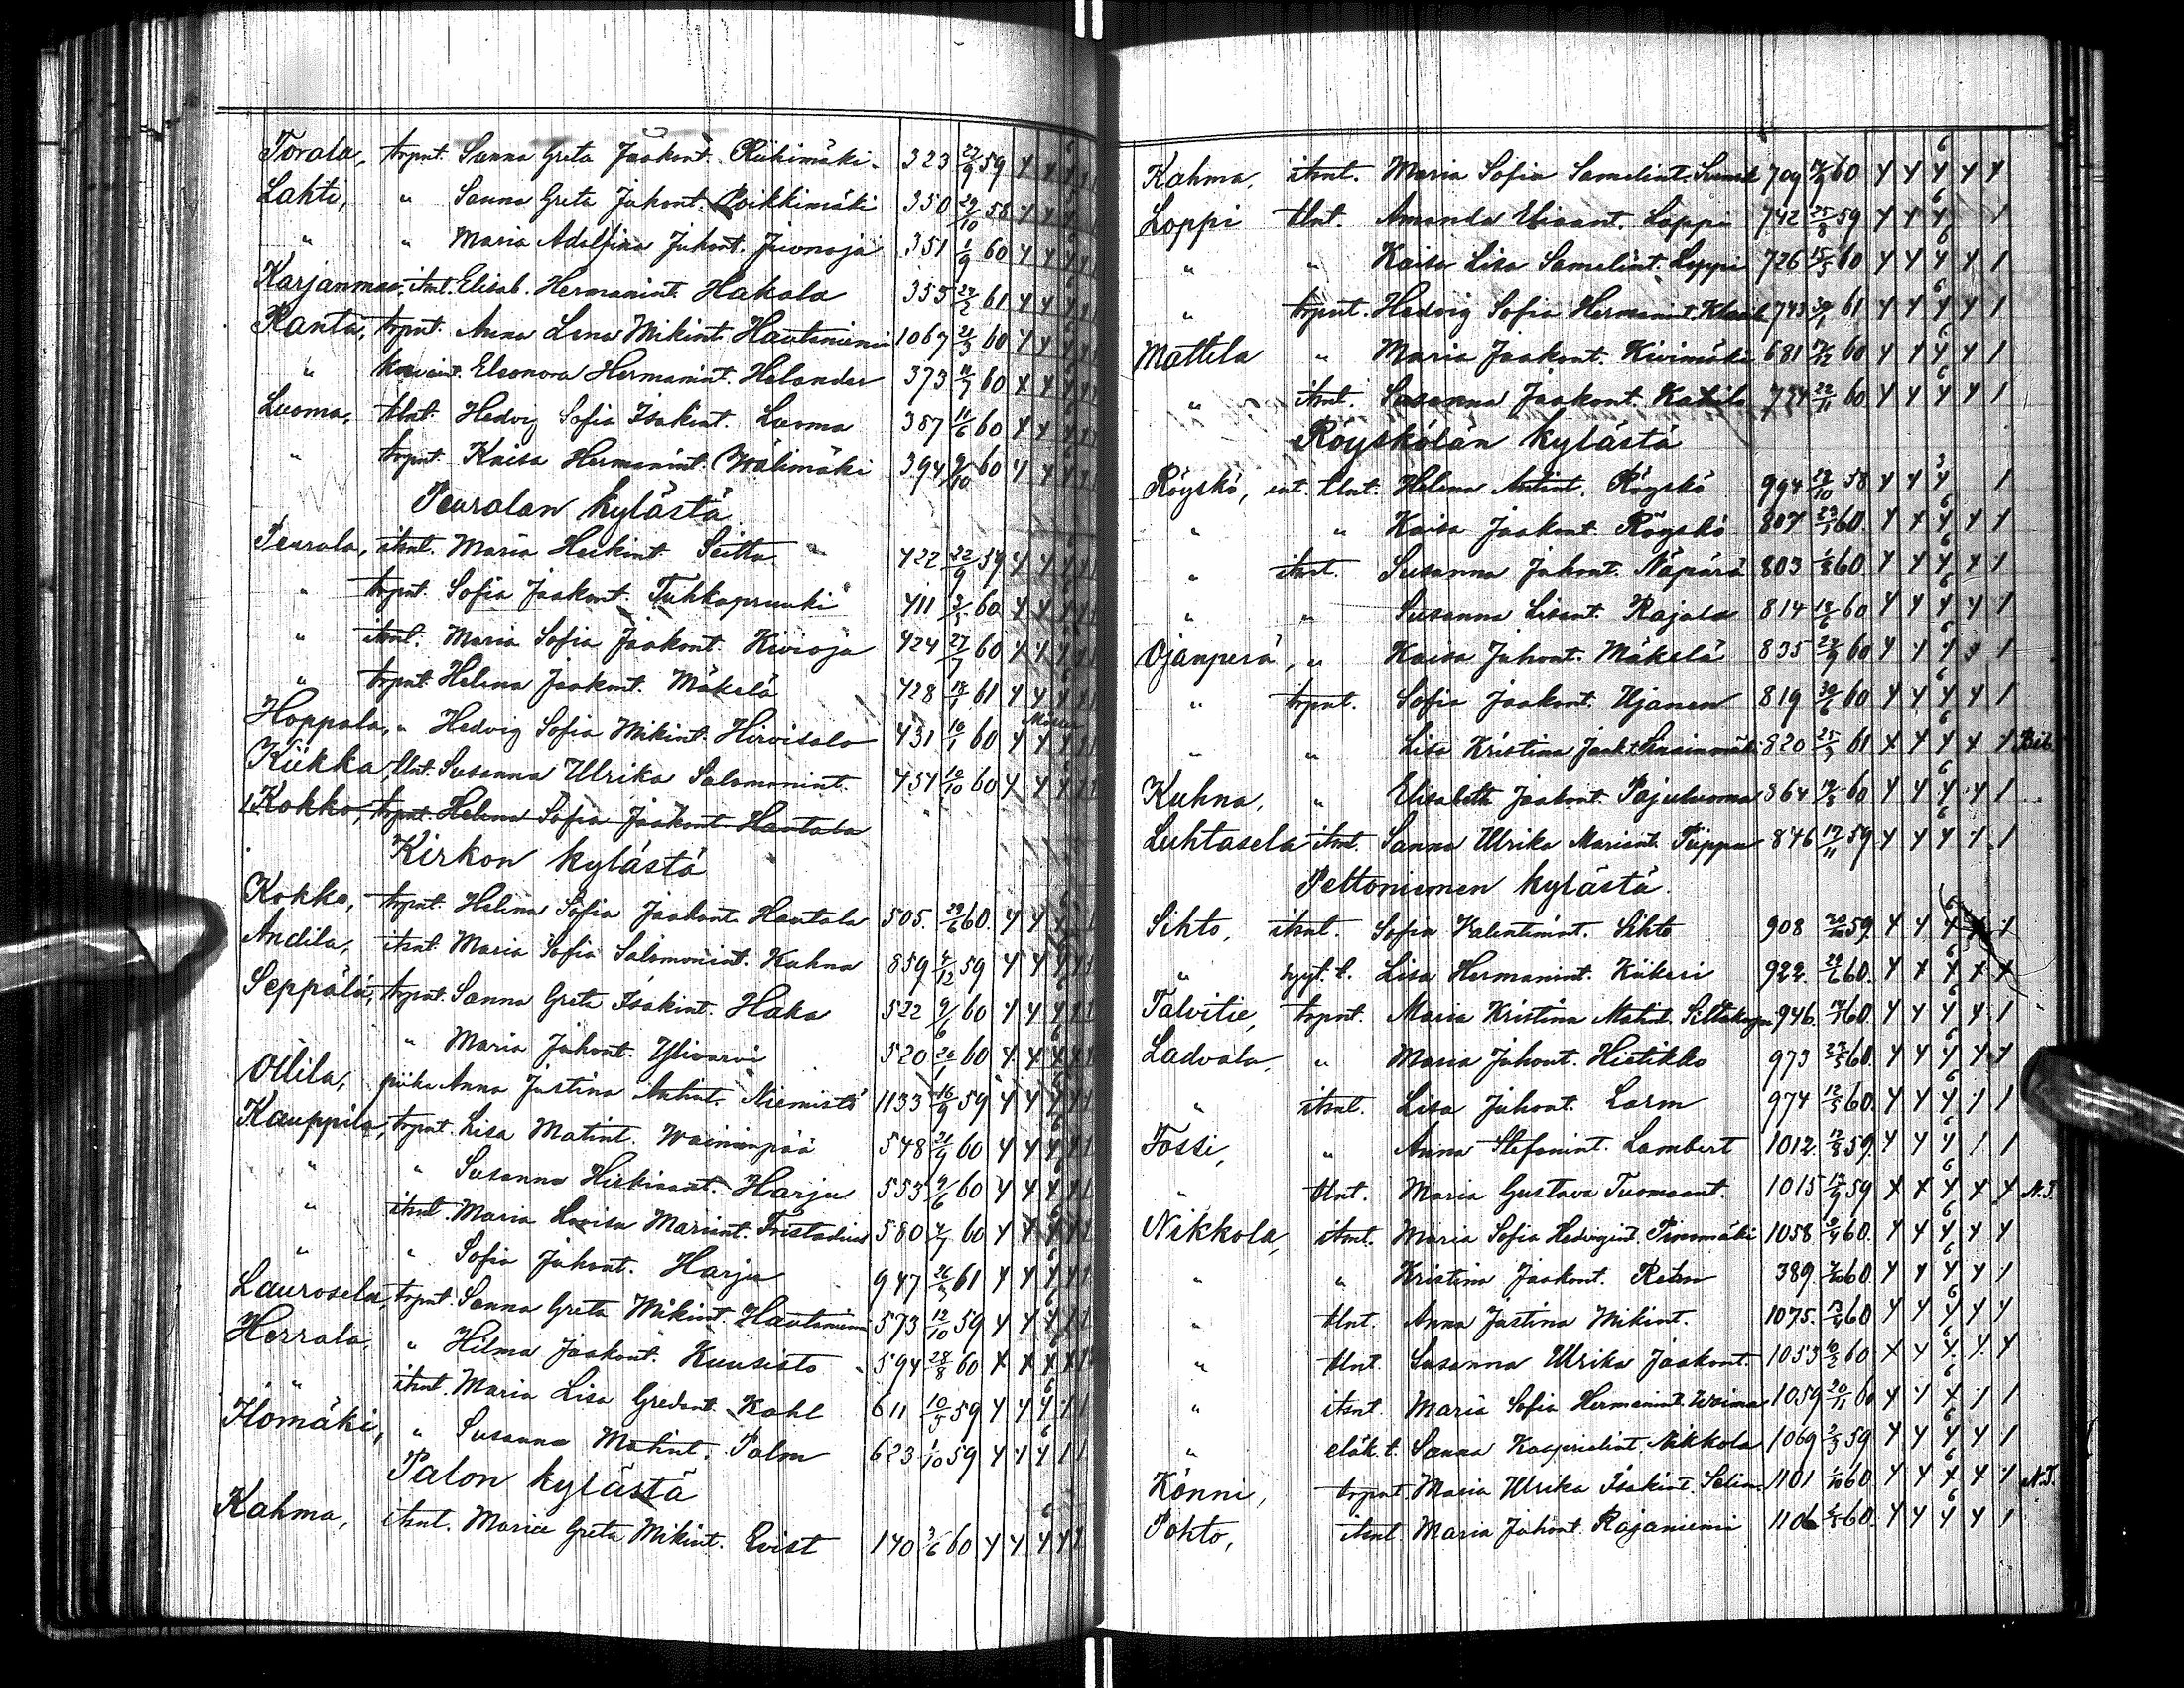 Torala, torpnt. Sanna Greta Jaakont. Riihimäki 323 27/9 59
Lahti, " Sanna Greta Juhont. Poikkimäki 350 29/10 58
" " Maria Adolfina Juhont. Juonoja 351 1/9 60
Karjanmaa, itsnt. Elisab. Hermanint. Hakola 355 22/2 61
Ranta, torpnt. Anna Lena Mikint. Hautaniemi 1067 21/3 60
" Eleonora Hermanint. Helander 373 11/7 60
Luoma, tlnt. Hedvig Sofia Isakint. Luoma 387 11/6 60
" torpnt. Kaisa Hermanint. Wälimäki 394 9/10 60
Peuralan kylästä
Peurala, itsnt. Maria Heikint. Seittu 422 22/9 59
" torpnt. Sofia Jaakont. Tuhkapruuki 411 60
" itsnt. Maria Sofia Jaakont. Kivioja 424 27/7 60
" torpnt. Helena Jaakont. Mäkelä 428 18/1 61
Hoppala, " Hedvig Sofia Mikint. Hirvisalo 431 10/1 60
Kiikka, tlnt. Susanna Ulrika Salomonint. 454 10/10 60
Kokko, torpnt. Helena Sofia Jaakont. Hautala
Kirkon kylästä
Kokko, torpnt. Helena Sofia Jaakont. Hautala 505. 29/6 60.
Andila, itsnt. Maria Sofia Salomonint. Kahna 859 2/12 59
Seppälä, torpnt. Sanna Greta Isakint. Haka 522 9/6 60
" Maria Juhont. Ylivarvi 520 20/1 60
Ollila, piika Anna Justina Antint. Niemistö 1133 16/9 59
Kauppila, torpnt. Lisa Matint. Wainionpää 548 21/9 60
" " Susanna Heikinant. Harju 553 9/6 60
" itsnt. Maria Lovisa Mariant. Fristadius 580 60
" " Sofia Juhont. Harju 947 26/3 61
Laurosela, torpnt. Sanna Greta Mikint. Hautaniemi 573 12/10 59
Herrala, " Hilma Jaakont. Kuusisto 594 28/8 60
" itsnt. Maria Lisa Gredant. Kahl 611 10/5 59
Ilomäki, " Susanna Matint. Palm 623 1/10 59
Palon kylästä
Kahma, itsnt. Maria Greta Mikint. Qvist 140 3/6 60
Kahma, itsnt. Maria Sofia Samelint. 709 60
Loppi tlnt. Amanda Eliaant. Loppi 742 25/8 59
" " Kaisa Lisa Samelint. Loppi 726 15/5 60
" torpnt. Hedvig Sofia Hermanint. 743 30/1 61
Mattila " Maria Jaakont. Kivimäki 681 60
" itsnt. Susanna Jaakont. Kattila 734 22/11 60
Röyskölän kylästä
Röyskö, ent. tlnt. Helena Antint. Röyskö 994 12/10 58
" " Kaisa Jaakont. Röyskö 807 60.
" itsnt. Susanna Juhont. Näpärä 803 60
" " Susanna Lisant. Rajala 814 18/6 60
Ojanperä, " Kaisa Juhont. Mäkelä 835 27/9 60
" torpnt. Sofia Jaakont. Ujanen 819 30/6 60
" " Lisa Kristina Jaak.t. 820 25/3 61 Bib.
Kuhna, " Elisabeth Jaakont. Pajuluoma 864 60
Luhtasela itsnt. Sanna Ulrika Mariant. Piippu 846 17/11 59
Peltoniemen kylästä.
Sihto, itsnt. Sofia Valentinint. Sihto 908 20/10 59.
" Lisa Hermanint. Kiikeri 922. 29/6 60.
Talvitie, torpnt. Maria Kristina Matint. 946. 60.
Ladvala, " Maria Juhont. Hietikko 973 27/5 60.
" itsnt. Lisa Juhont. Lorm 974 12/5 60.
Fossi, " Anna Stefanint. Lambert 1012. 12/8 59.
" tlnt. Maria Gustava Tuomaant. 1015 17/9 59 N.T.
Nikkola, itsnt. Maria Sofia Hedvigint. Pinomäki 1058 60.
" " Kristina Jaakont. Rehn 389. 60.
" tlnt. Anna Justina Mikint. 1075. 60
" tlnt. Susanna Ulrika Jaakont. 1053 10/3 60
" itsnt. Maria Sofia Hermanint. 1059 20/11 60
" eläk. t. Sanna Kaaprielint. Nikkola 1069 2/3 59
Könni, torpnt. Maria Ulrika Isakint. Selin. 1101 1/10 60 N.T.
Pohto, itsnt. Maria Juhont. Rajaniemi 1106 60.